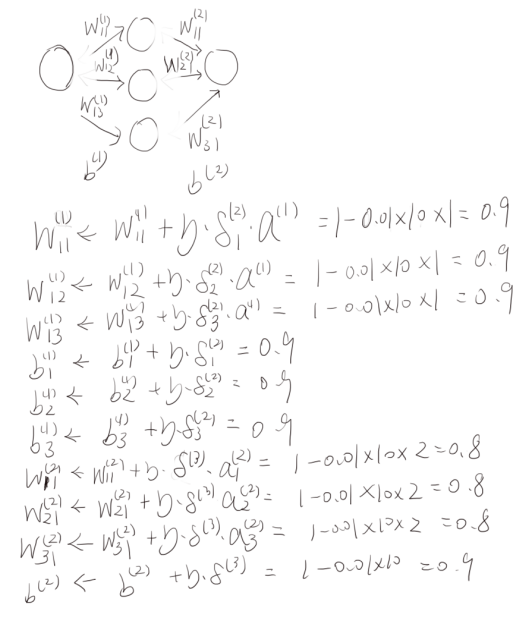 W₁₁⁽¹⁾ W₁₁⁽²⁾
W₁₂⁽¹⁾ W₂₁⁽²⁾
W₁₃⁽¹⁾ W₃₁⁽²⁾
b⁽¹⁾ b⁽²⁾
W₁₁⁽¹⁾ ← W₁₁⁽¹⁾ + η·δ₁⁽²⁾·a⁽¹⁾ = 1-0.01×10×1 = 0.9
W₁₂⁽¹⁾ ← W₁₂⁽¹⁾ + η·δ₂⁽²⁾·a⁽¹⁾ = 1-0.01×10×1 = 0.9
W₁₃⁽¹⁾ ← W₁₃⁽¹⁾ + η·δ₃⁽²⁾·a⁽¹⁾ = 1-0.01×10×1 = 0.9
b₁⁽¹⁾ ← b₁⁽¹⁾ + η·δ₁⁽²⁾ = 0.9
b₂⁽¹⁾ ← b₂⁽¹⁾ + η·δ₂⁽²⁾ = 0.9
b₃⁽¹⁾ ← b₃⁽¹⁾ + η·δ₃⁽²⁾ = 0.9
W₁₁⁽²⁾ ← W₁₁⁽²⁾ + η·δ⁽³⁾·a₁⁽²⁾ = 1-0.01×10×2 = 0.8
W₂₁⁽²⁾ ← W₂₁⁽²⁾ + η·δ⁽³⁾a₂⁽²⁾ = 1-0.01×10×2 = 0.8
W₃₁⁽²⁾ ← W₃₁⁽²⁾ + η·δ⁽³⁾·a₃⁽²⁾ = 1-0.01×10×2 = 0.8
b⁽²⁾ ← b⁽²⁾ + η·δ⁽³⁾ = 1-0.01×10 = 0.9